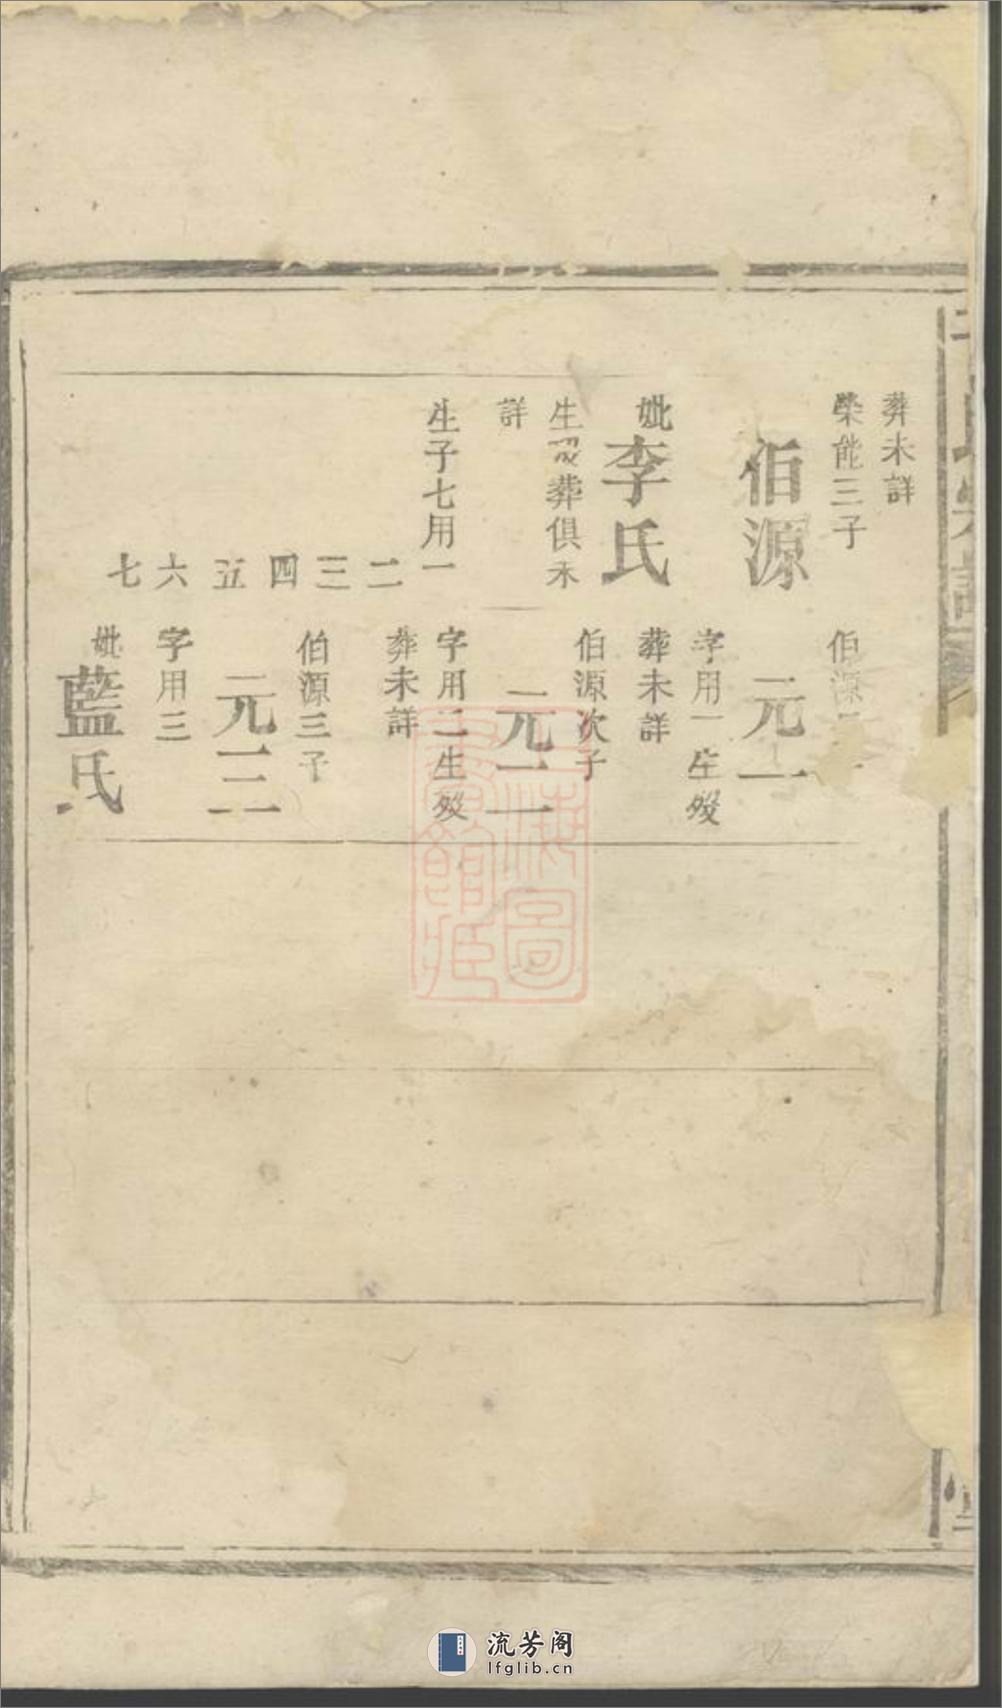 葬未詳
榮能三子
伯源
妣李氏
生殁葬俱未
詳
生子七用一
二
三
四
五
六
七
伯源
元一
字用一生殁
葬未詳
伯源次子
元二
字用二生殁
葬未詳
伯源三子
元三
字用三
妣藍氏
上海圖
書館藏
流芳阁
lfglib.cn